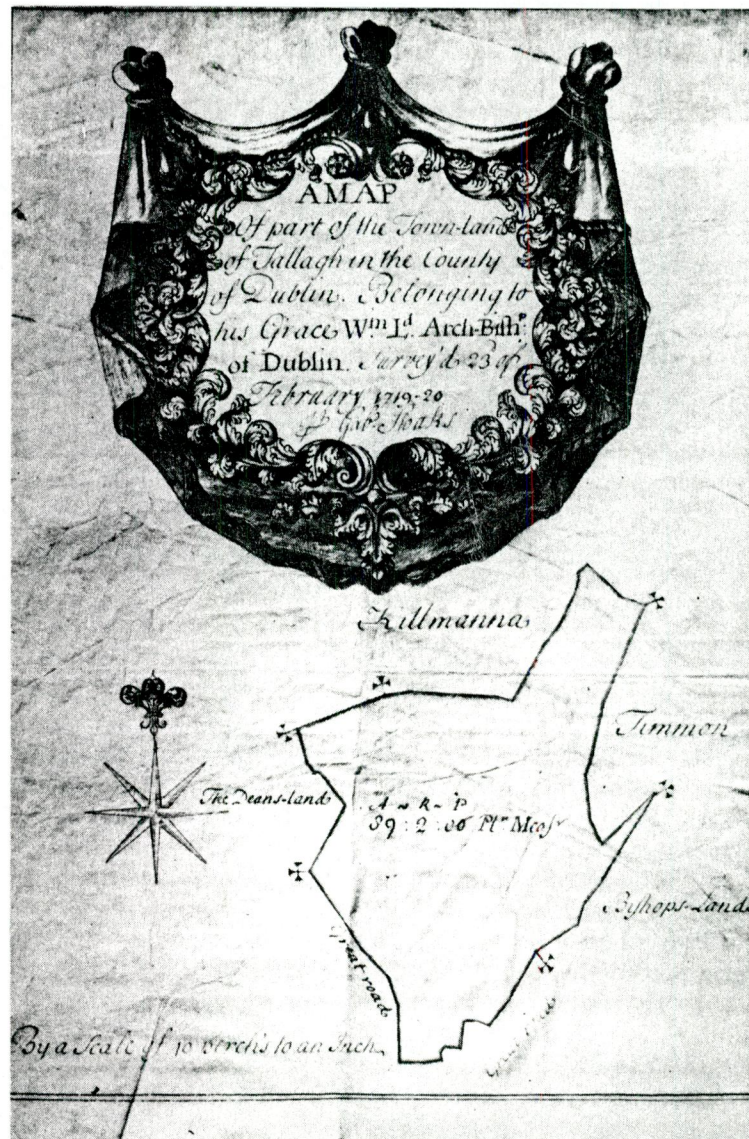 A MAP
Of part of the Town-land
of Tallagh in the County
of Dublin. Belonging to
his Grace Wm. Ld. Arch-Bishp.
of Dublin. Survey'd 23 of
February 1719-20
Killmanna
Timmon
The Deans-land
A ~ R ~ P
39 : 2 : 06 Pln
Bishops-Land
Great road
By a Scale of 10 perch's to an Inch